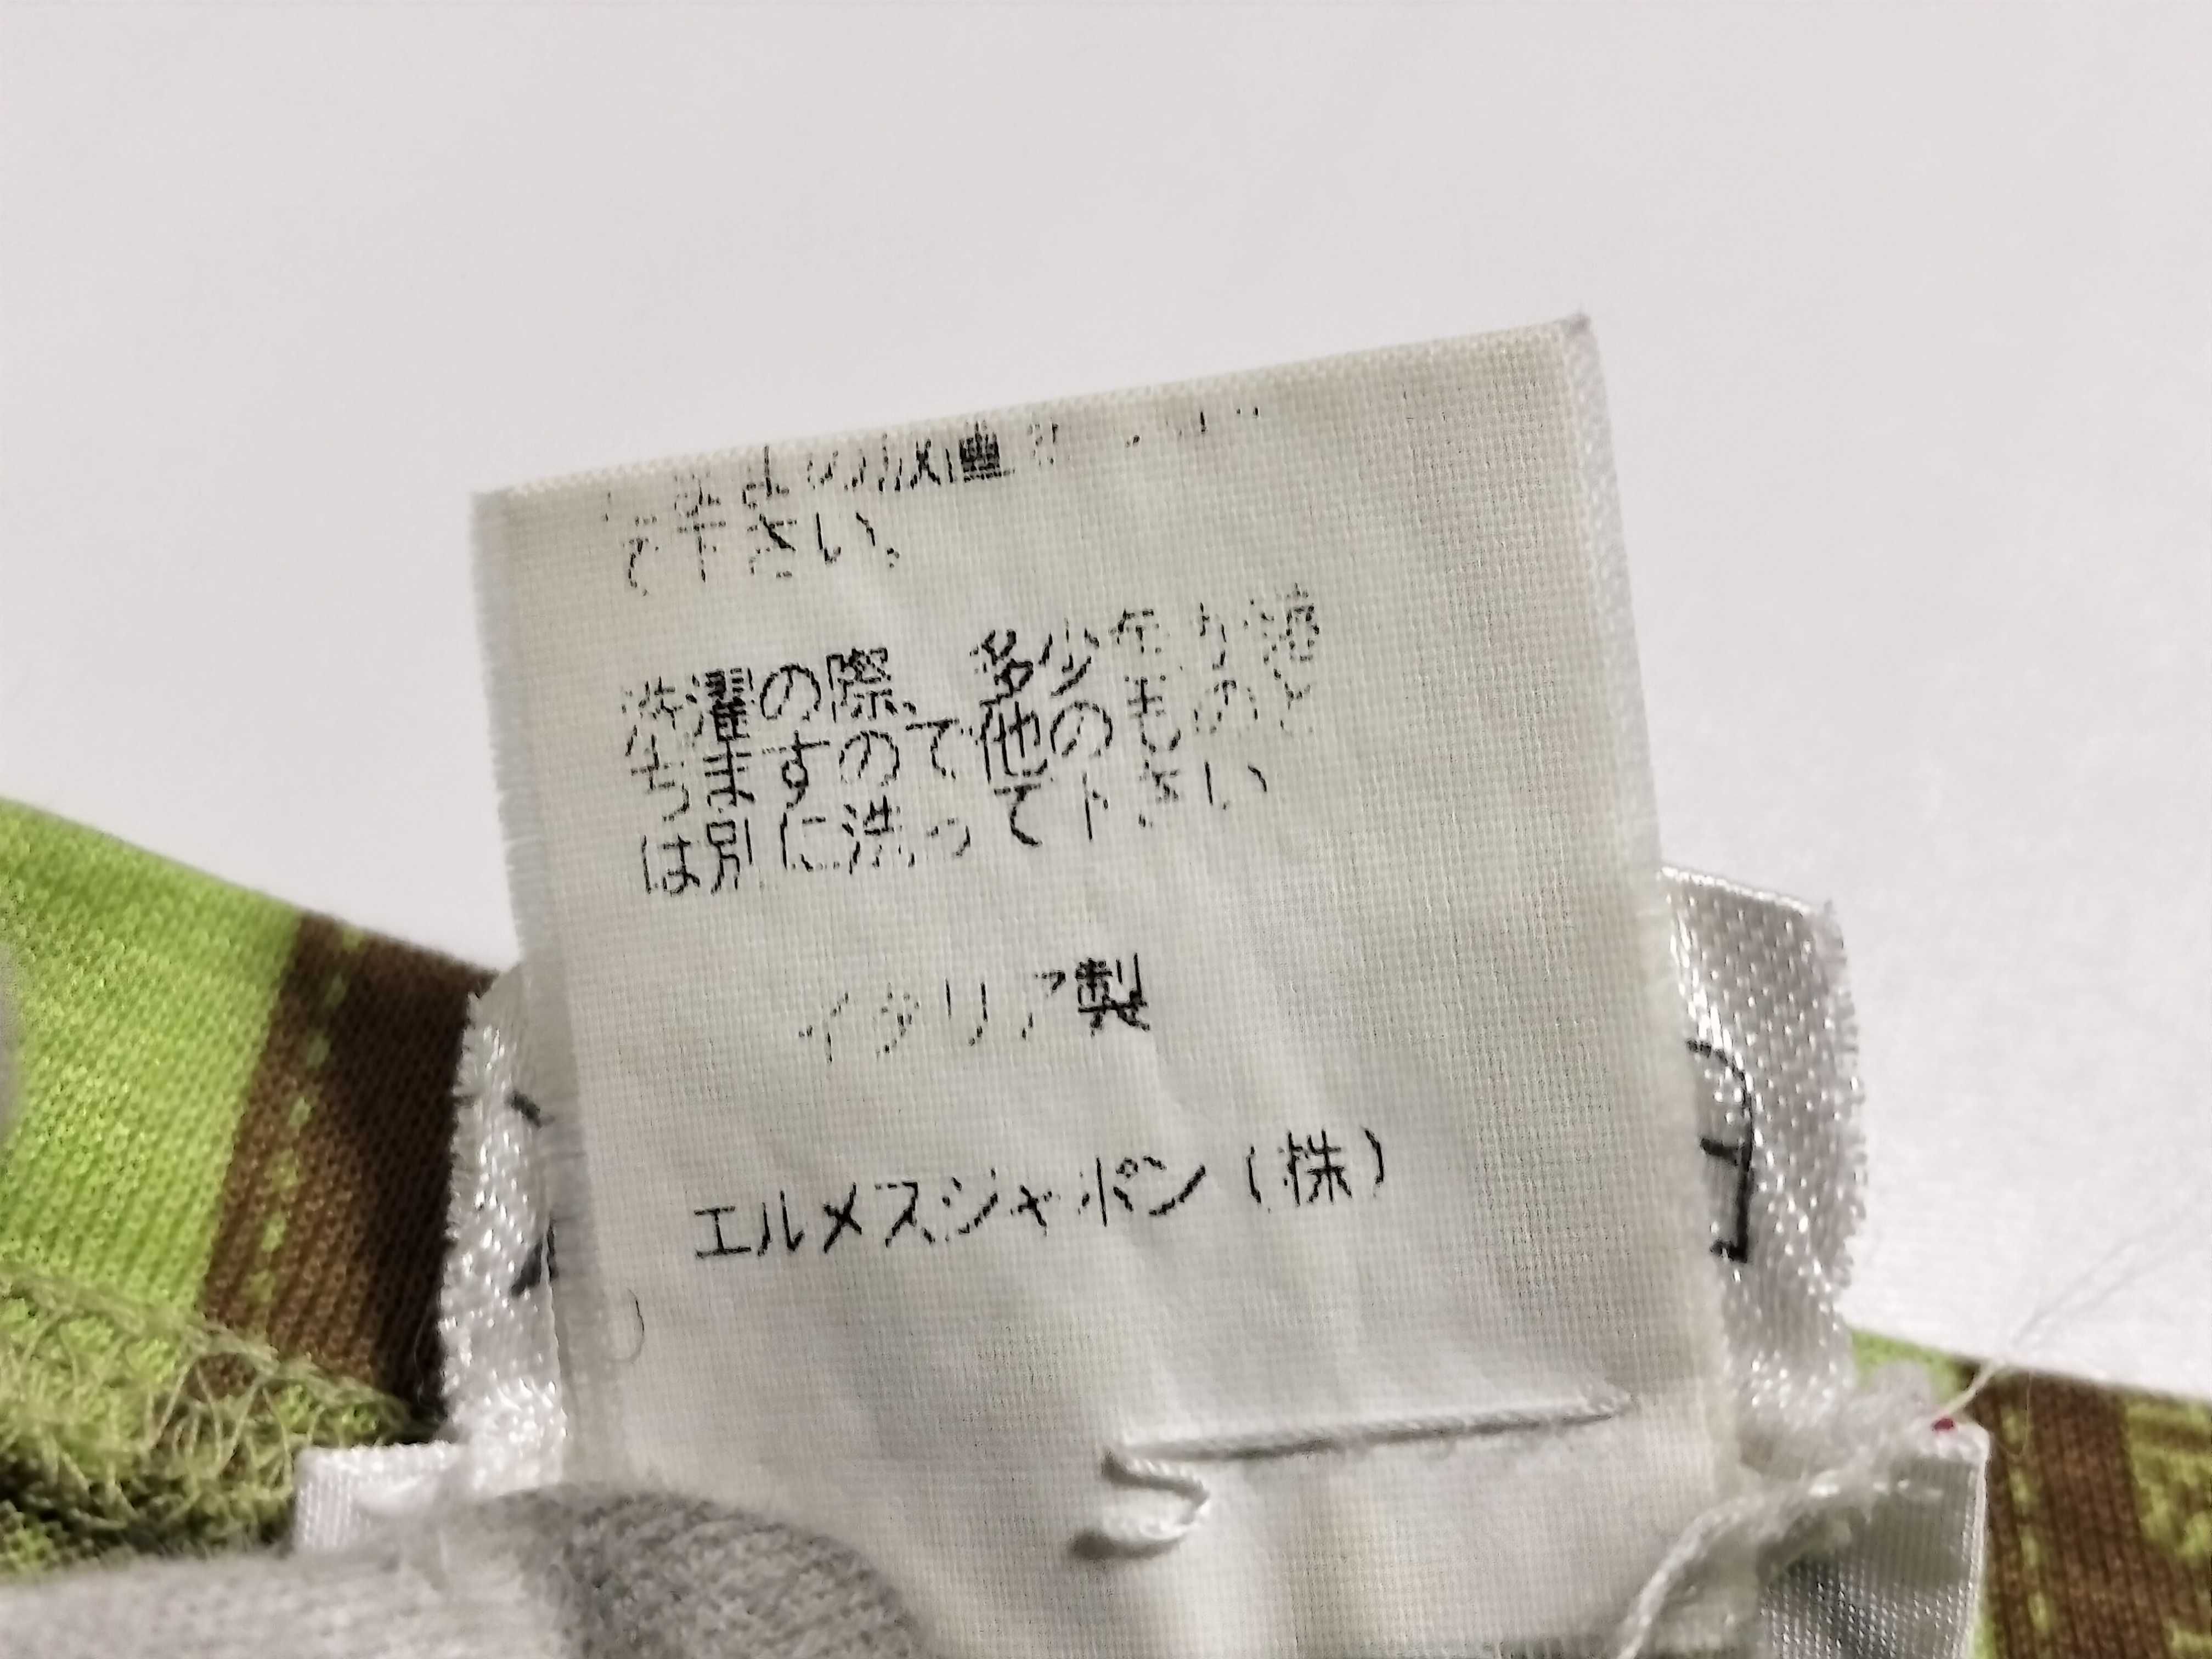 の放置
て下さい。
洗濯の際、多少色が落
ちますので他のものと
は別に洗って下さい
イタリア製
エルメスジャポン（株）